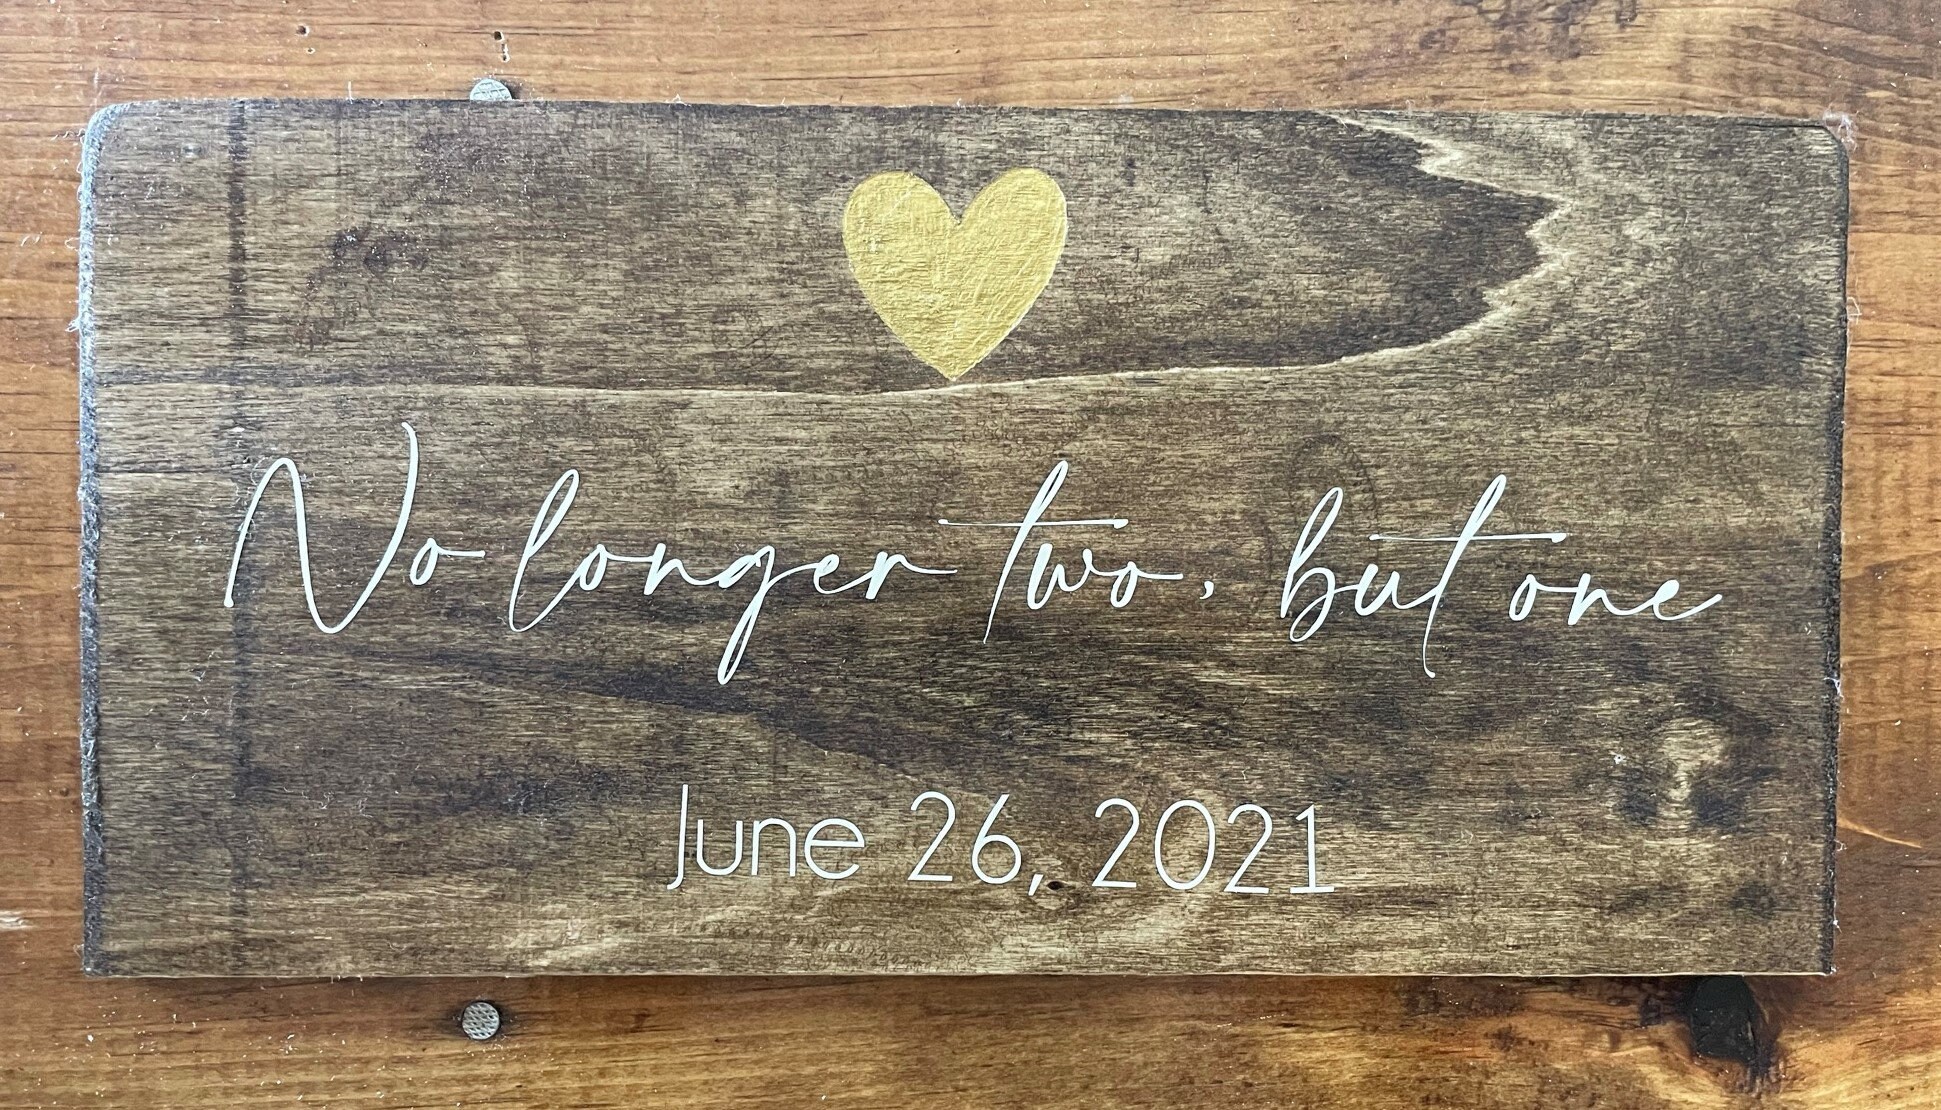 No longer two, but one
June 26, 2021